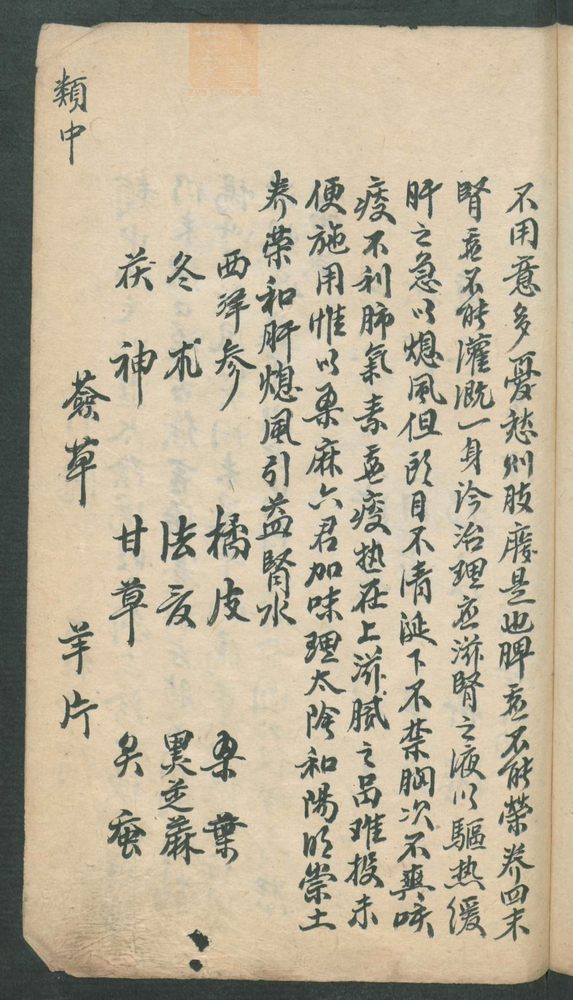 不用意多憂愁則肢廢是也脾虛不能榮养四末
腎虛不能灌溉一身診治理應滋腎之液以驅熱緩
肝之急以熄風但頭目不清涎下不禁胸次不爽咳
痰不利肺氣素虛痰热在上滋膩之品难投未
便施用惟以桑麻六君加味理太陰和陽明崇土
养榮和肝熄風引益腎水
西洋参 橘皮 桑葉
冬术 法夏 黑芝蔴
茯神 甘草 炙蚕
薟草 竿片
類中